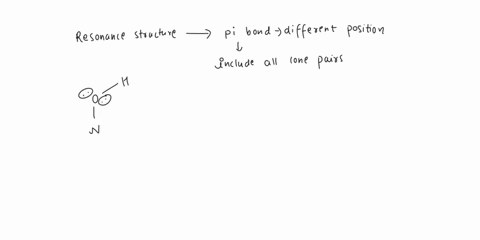 Resonance structure → pi bond → different position
↓
include all lone pairs
H
O
N